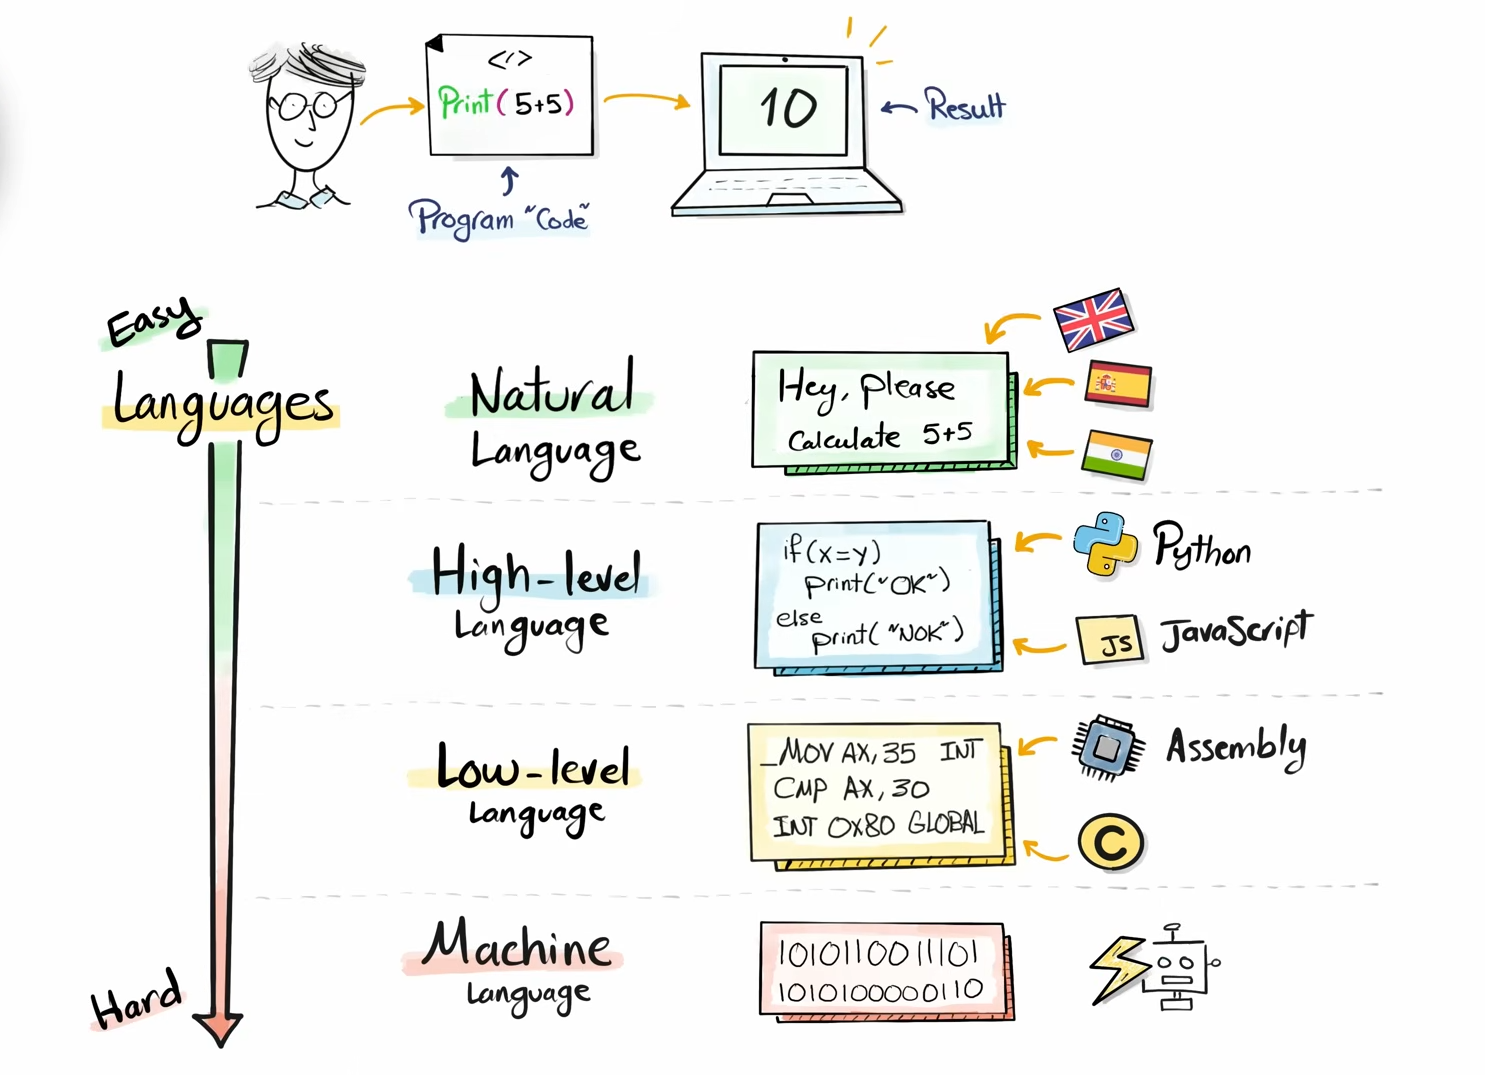 </>
Print( 5+5)
10
Result
Program "Code"
Easy
Languages
Hard
Natural
Language
Hey, please
Calculate 5+5
High-level
Language
if(x=y)
print("OK")
else
print("NOK")
Python
JS
JavaScript
Low-level
Language
_MOV AX, 35 INT
CMP AX, 30
INT 0X80 GLOBAL
Assembly
C
Machine
Language
1010110011101
1010100000110